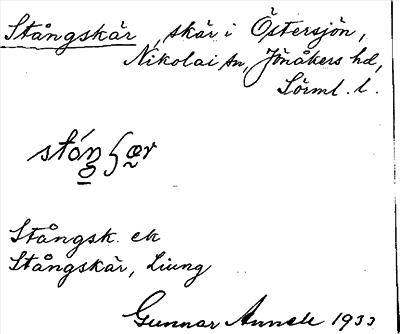 Stångskär, skär i Östersjön,
Nikolai sn, Jönåkers hd,
Sörml. l.
Stångsk. ek
Stångskär, Ljung
Gunnar 1933